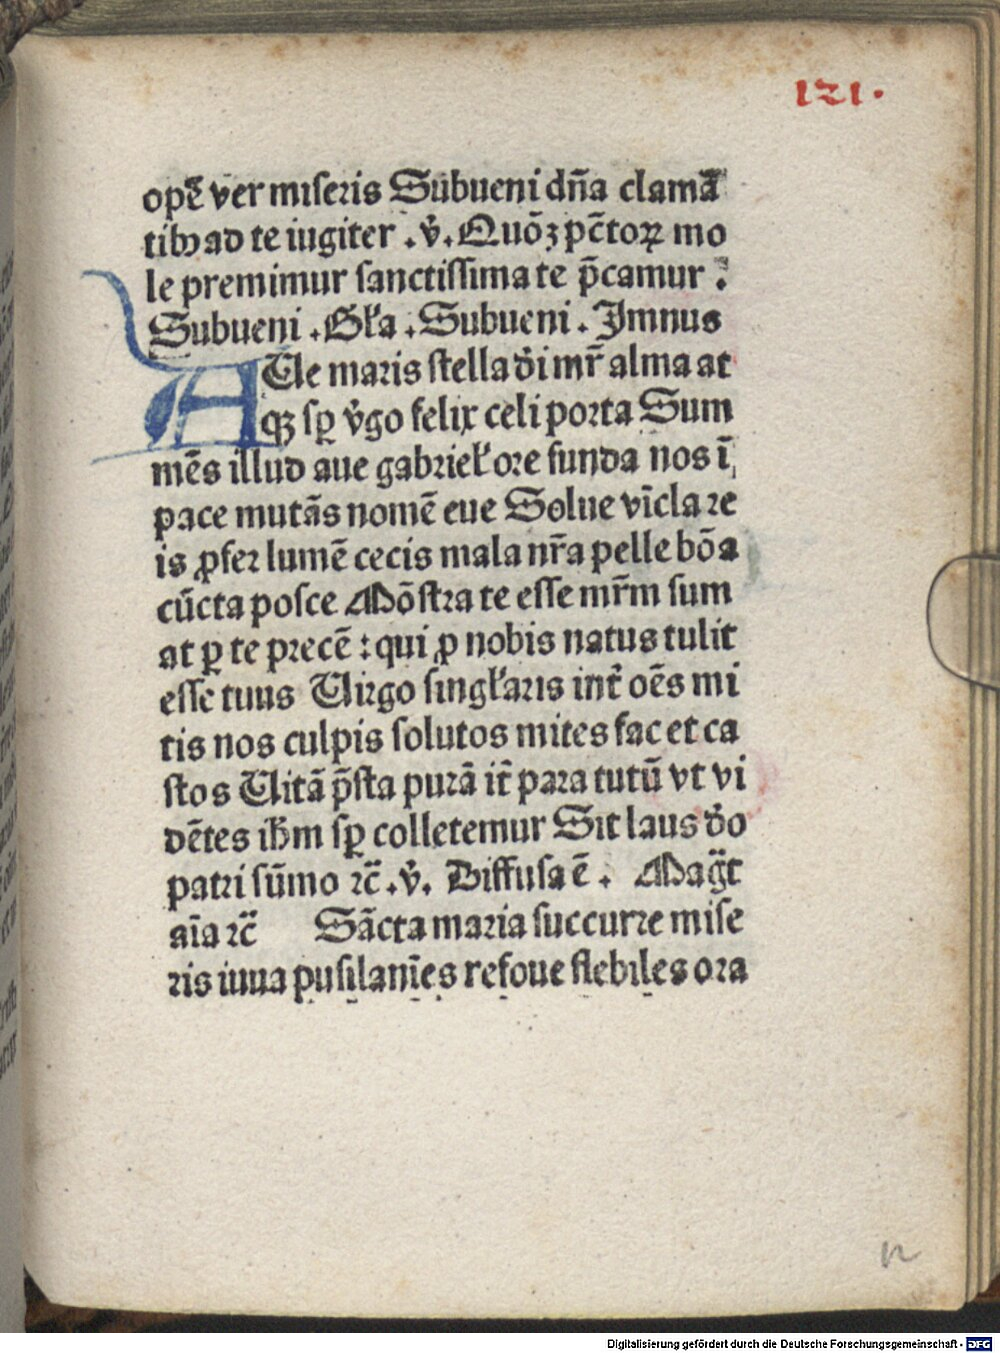 121.
opē ver miseris Subueni dn̄a clamā
tibꝫ ad te iugiter .v̄. Quōꝫ pc̄toꝝ mo
le premimur sanctissima te p̄camur :
Subueni . Gl̄a . Subueni . Jmnus
AUe maris stella dī mr̄ alma at
qꝫ sꝑ v̄go felix celi porta Sum
mēs illud aue gabriel̄ ore funda nos ī
pace mutās nomē eue Solue vīcla re
is ꝓfer lumē cecis mala nr̄a pelle bōa
cūcta posce Mōstra te esse mr̄m sum
at ꝑ te precē : qui ꝓ nobis natus tulit
esse tuus Uirgo singl̄aris int̄ oēs mi
tis nos culpis solutos mites fac et ca
stos Uitā p̄sta purā it̄ para tutū vt vi
dētes ih̄m sꝑ colletemur Sit laus dō
patri sūmo ⁊c̄ .v̄. Diffusa ē . Magt̄
aīa ⁊c̄ Sācta maria succurre mise
ris iuua pusilanīes refoue flebiles ora
n
Digitalisierung gefördert durch die Deutsche Forschungsgemeinschaft - DFG